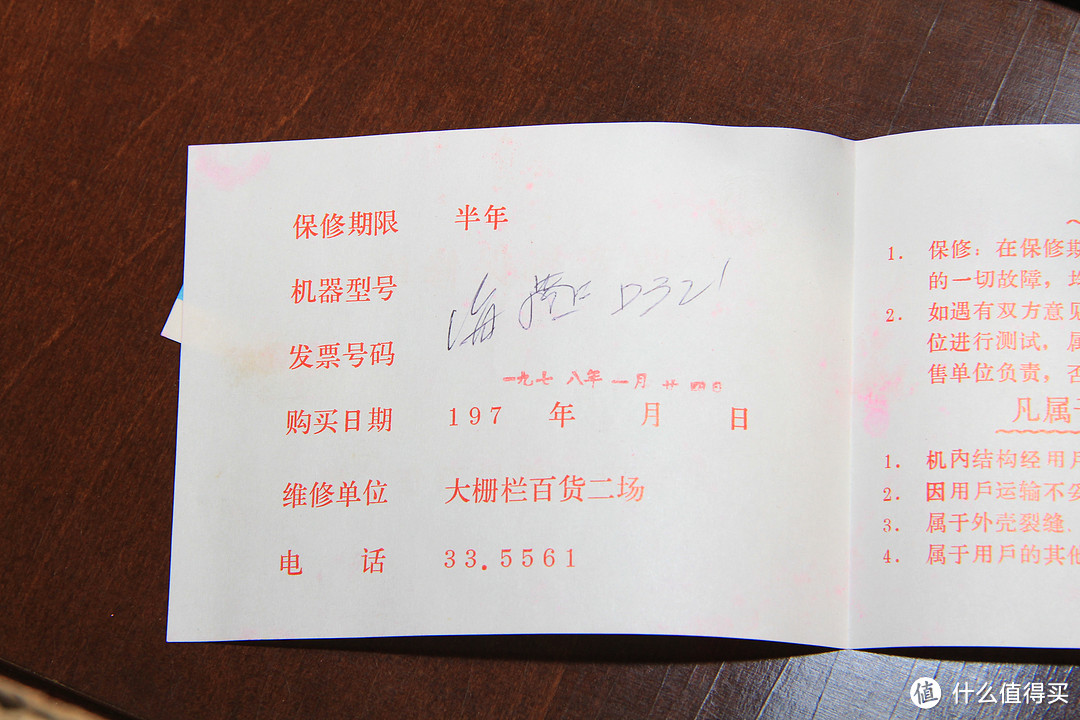 保修期限 半年
机器型号 海 D321
发票号码
一九七八年一月廿四日
购买日期 197 年 月 日
维修单位 大栅栏百货二场
电 话 33.5561
1. 保修：在保修期
的一切故障，
2. 如遇有双方意见
位进行测试，属
售单位负责，否
凡属
1. 机内结构经用户
2. 因用戶运输不妥
3. 属于外壳裂缝、
4. 属于用戶的其他
值 什么值得买